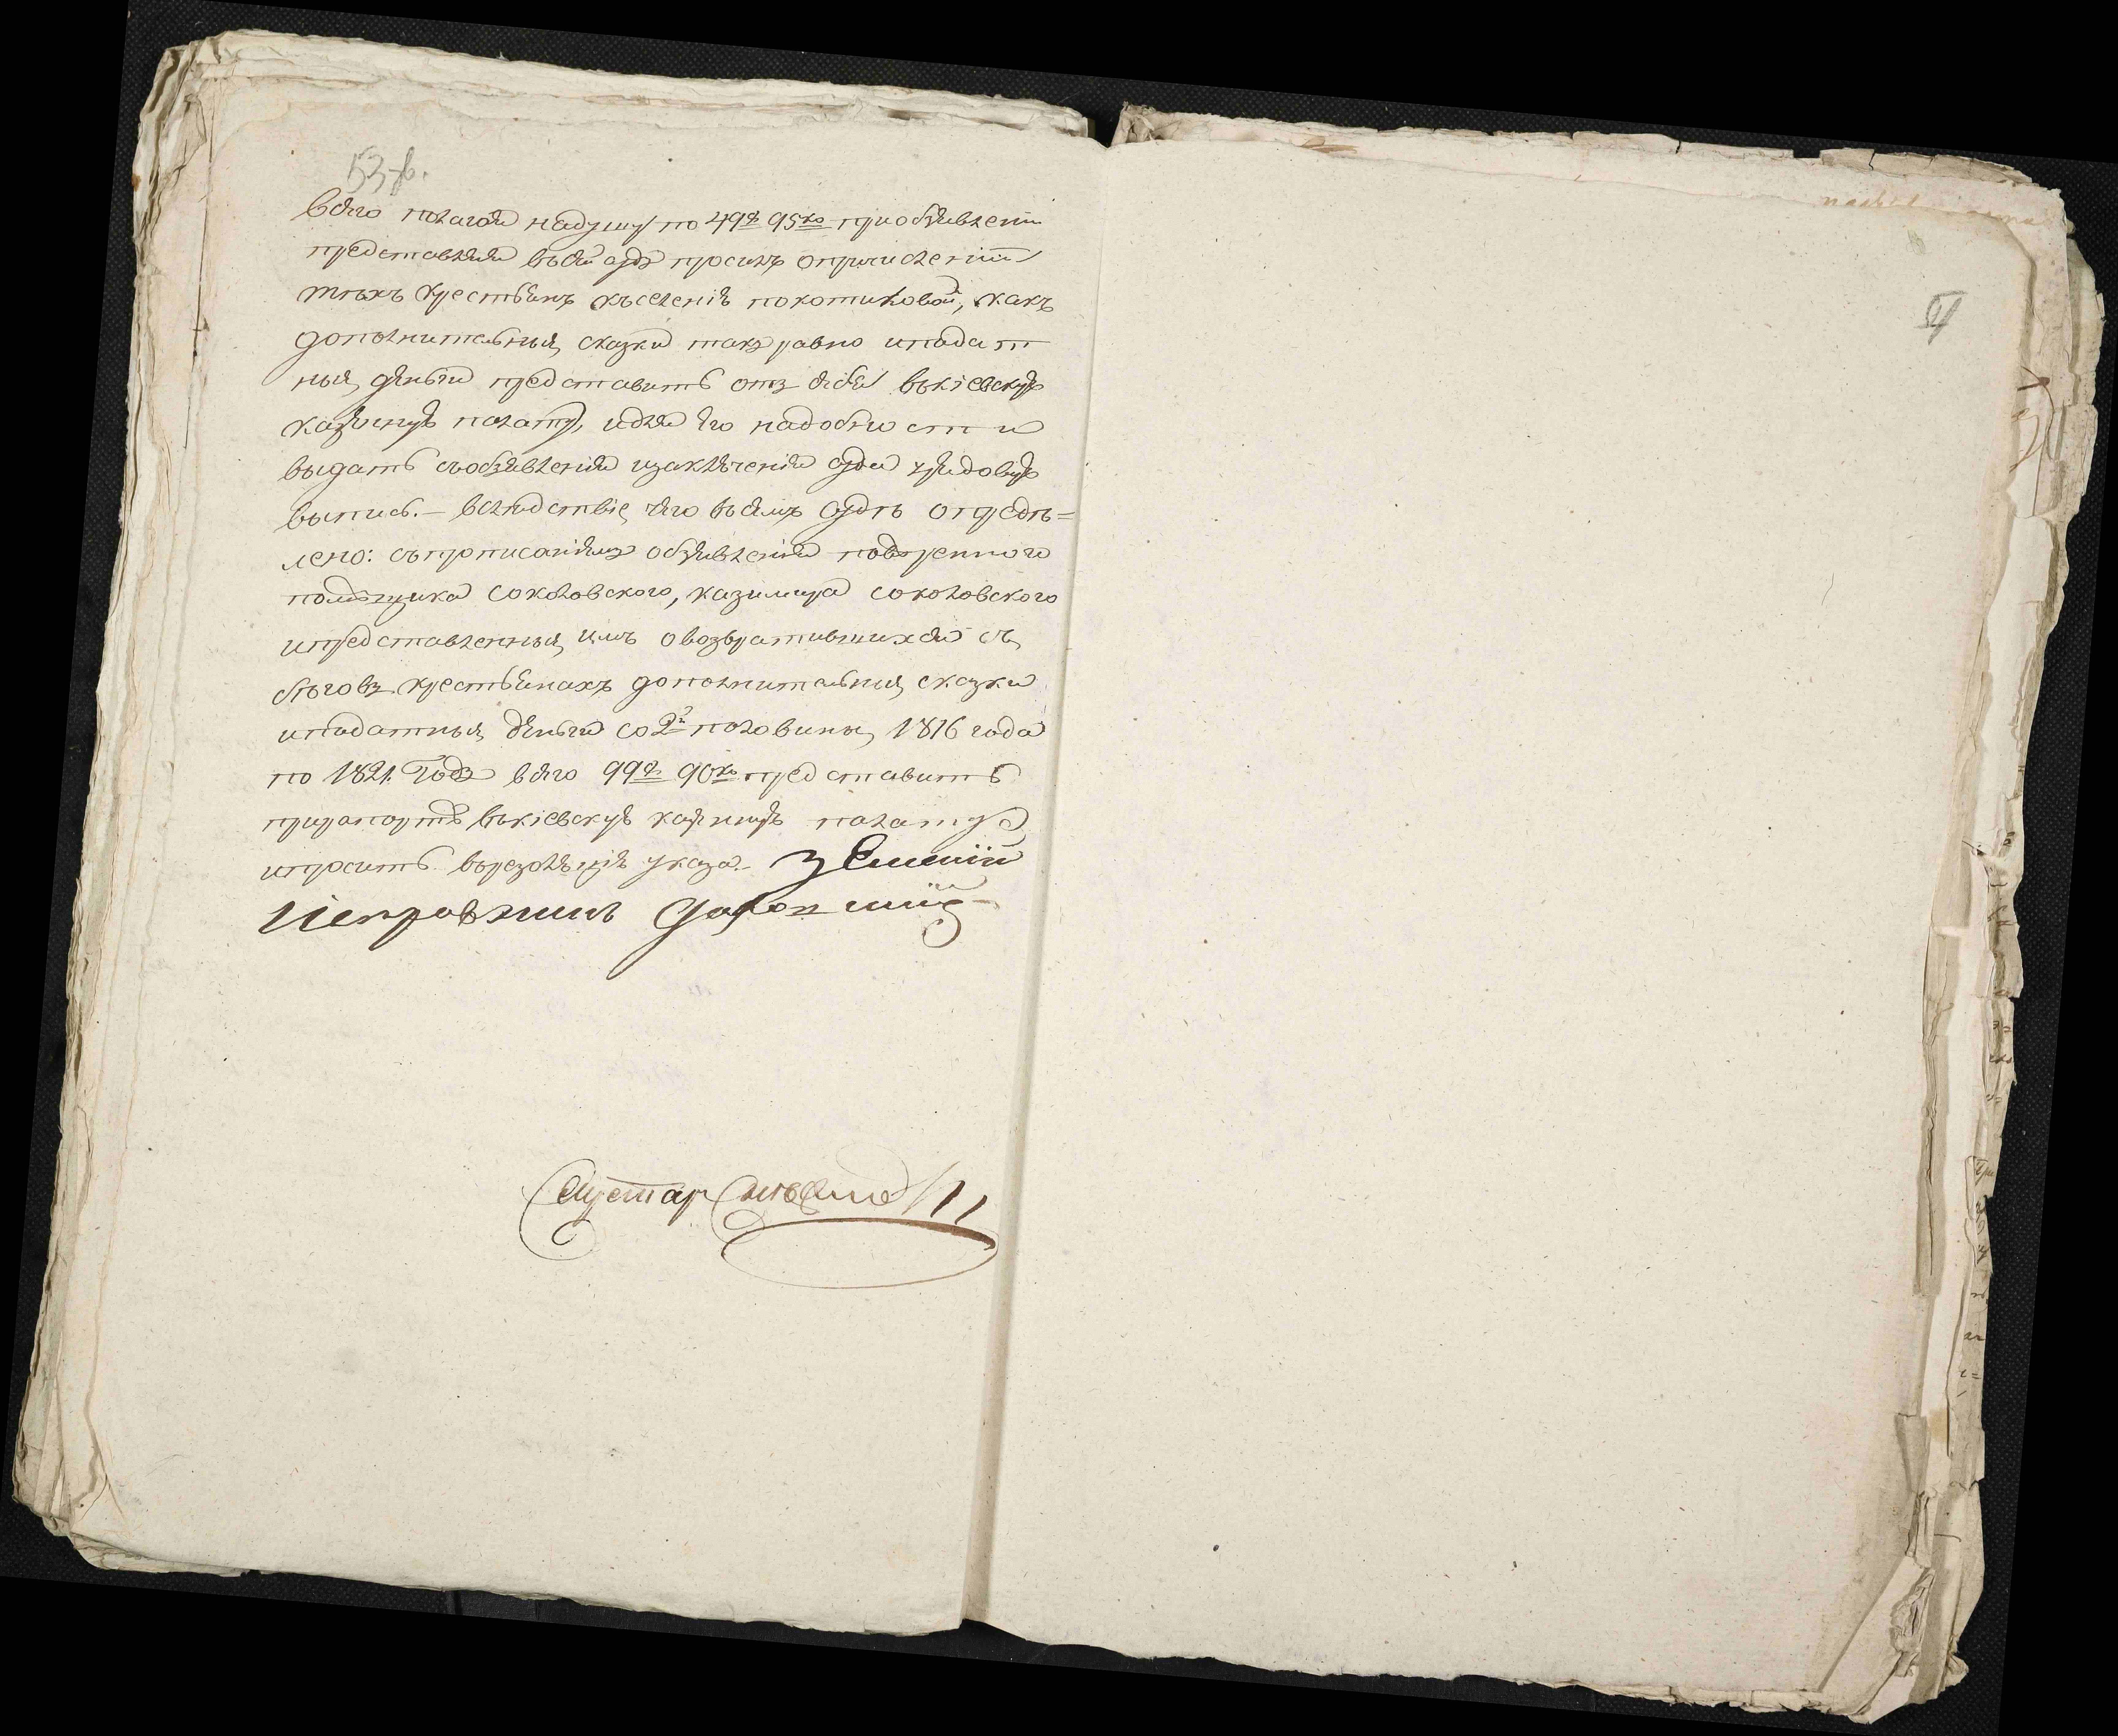 53 об.
всего полагая надушу по 49р 95ко приобъявленіи
представляя всей судъ просилъ опричисленіи
тѣхъ крестьянъ къселенію похотиковой, какъ
дополнительныя сказки такъ равно иподат
ныя деньги представить отъ себя вкіевскую
казенную палату, идля его надобности
выдать собъявленія изаключенія суда урядовую
выпись. — вслѣдствіе чего всемъ судѣ опредѣ=
лено: спрописаніемъ объявленія повѣренного
помѣщика соколовского, казимира соколовского
ипредставленныя имъ овозвратившихся съ
бѣговъ крестьянахъ дополнительныя сказки
иподатныя деньги со 2й половины 1816 года
по 1821. Годъ всего 99р 90ко представить
прирапортѣ вкіевскую казенную палату
ипросить врезолюцію указа. — Земский
Исправникъ
Секретарь
54